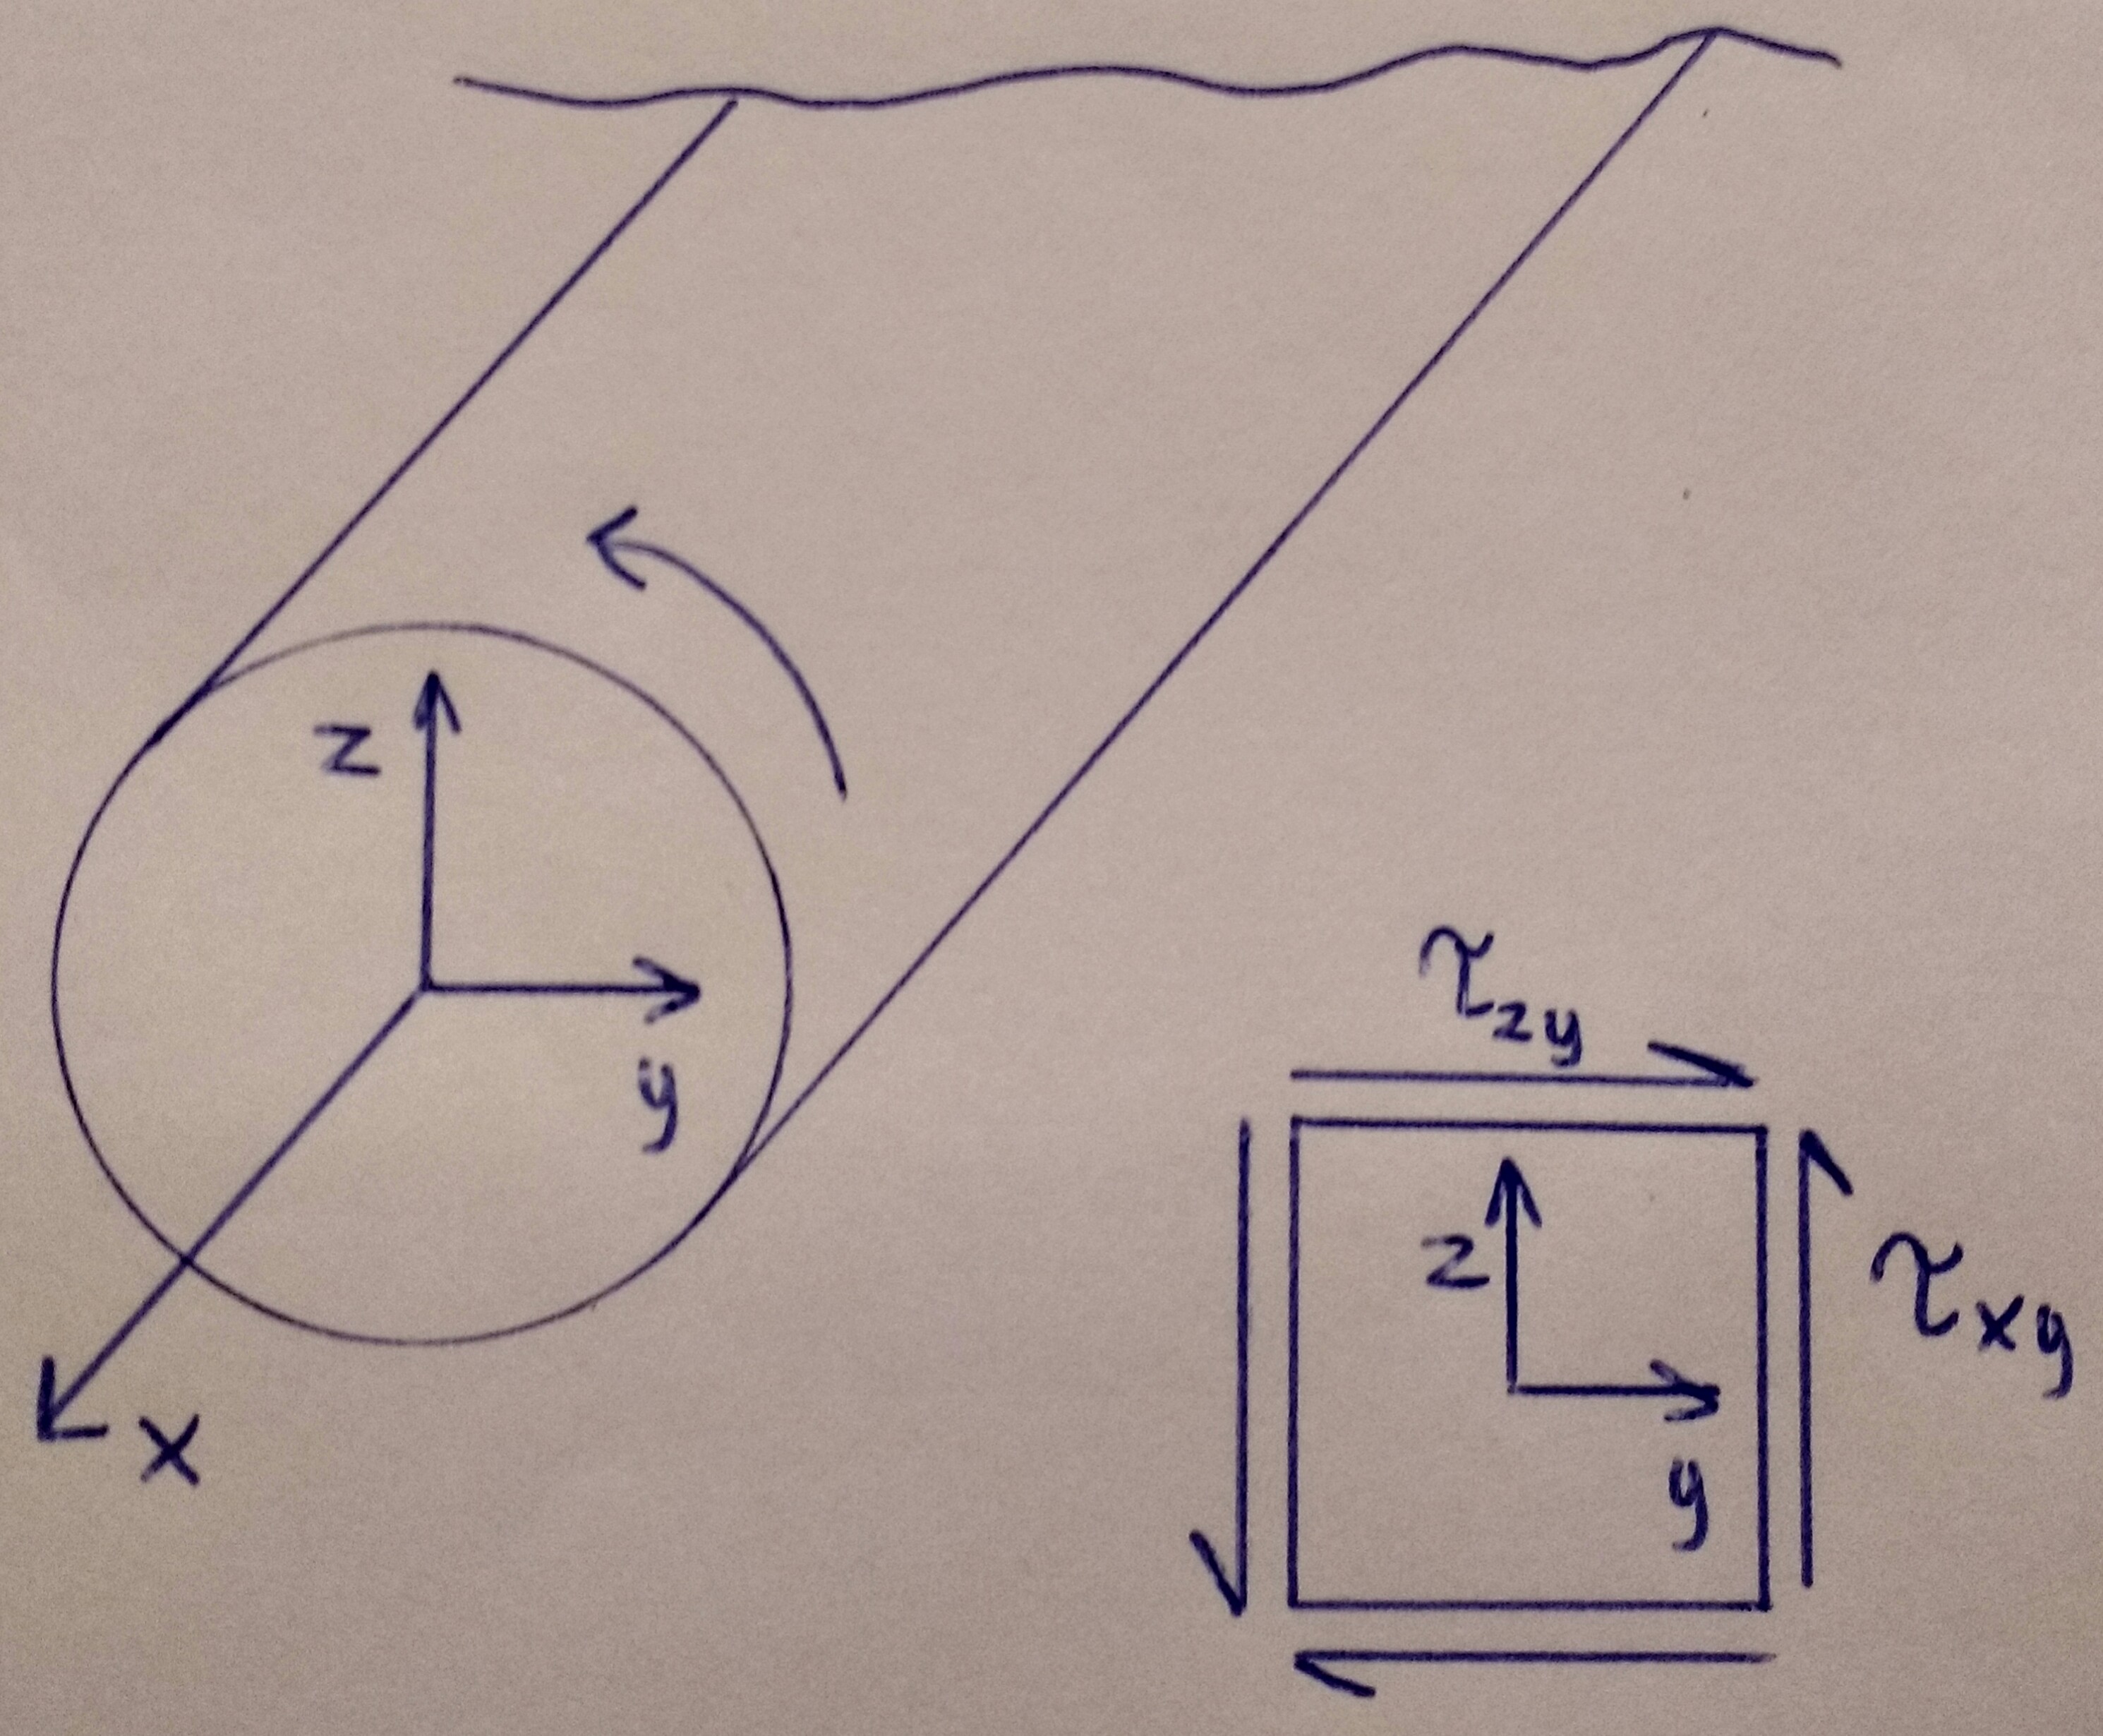 z
y
x
τzy
z
y
τxy